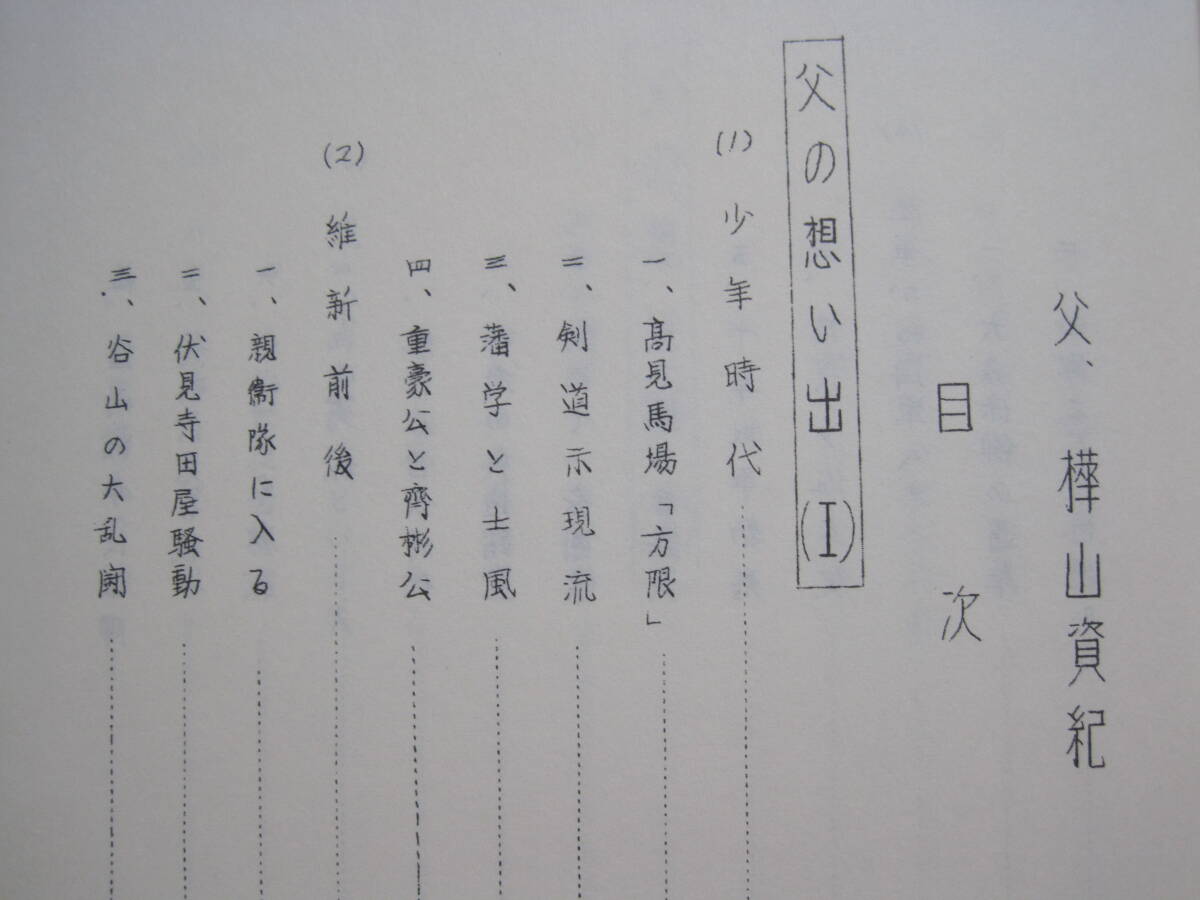 父、樺山資紀
目次
父の想い出(I)
(1) 少年時代
一、高見馬場「方限」
二、剣道示現流
三、藩学と士風
四、重豪公と齊彬公
(2) 維新前後
一、親衛隊に入る
二、伏見寺田屋騒動
三、谷山の大乱闘